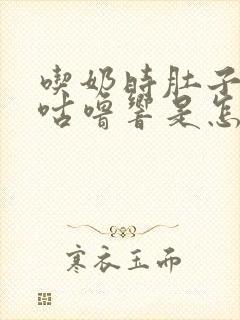 喫奶時肚子
咕嚕響是怎
寒衣玉而